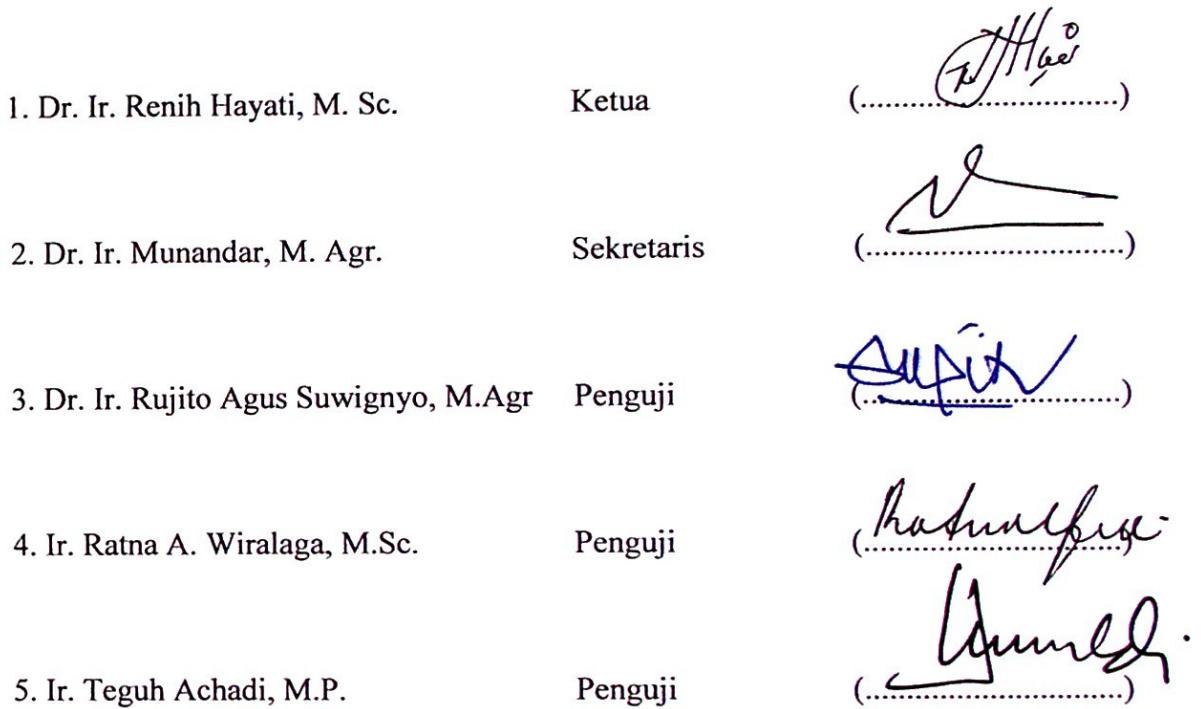 1. Dr. Ir. Renih Hayati, M. Sc. Ketua (...............................)
2. Dr. Ir. Munandar, M. Agr. Sekretaris (...............................)
3. Dr. Ir. Rujito Agus Suwignyo, M.Agr Penguji (...............................)
4. Ir. Ratna A. Wiralaga, M.Sc. Penguji (...............................)
5. Ir. Teguh Achadi, M.P. Penguji (...............................)